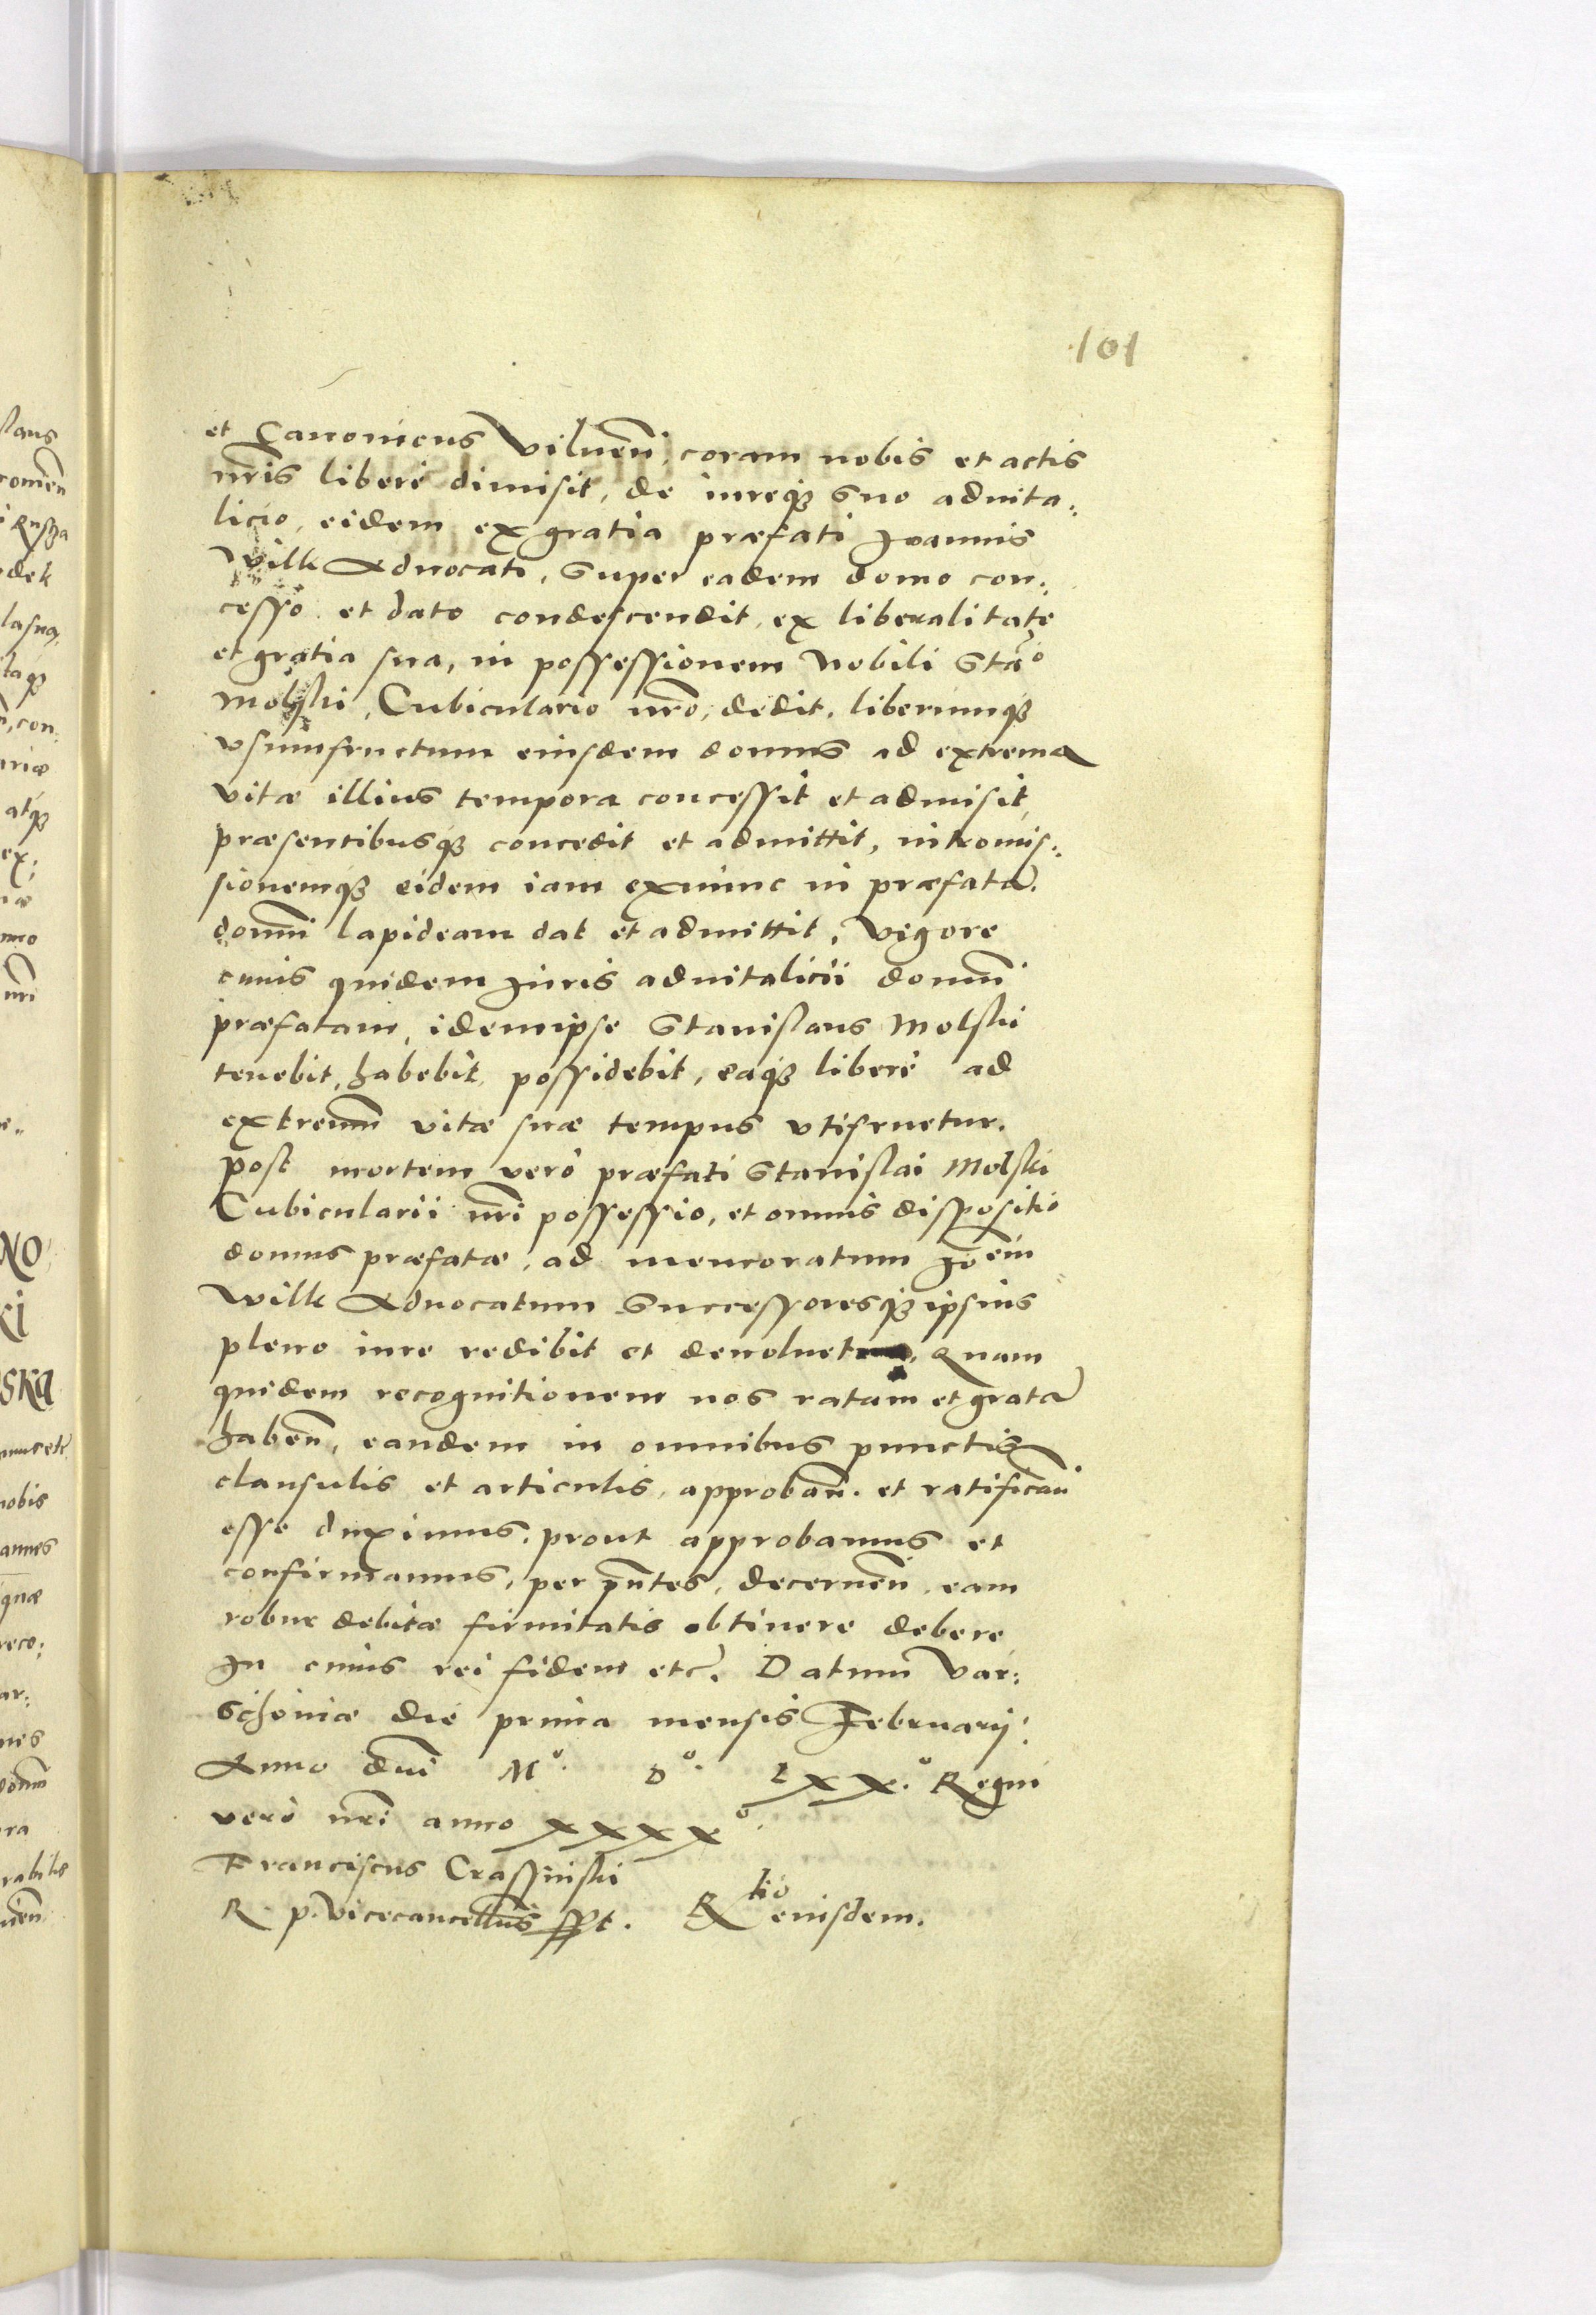 101
et Canonicus Vilnen̄, coram nobis et actis
nr̄is liberè dimisit, de iureq3 suo aduita:
licio, eidem ex gratia præfati Joannis
Wilk Aduocati, super eadem domo con:
cesso et dato condescendit, ex liberalitate
et gratia sua, in possessionem Nobili Stāo
Molski, Cubiculario nr̄o, dedit, liberumq3
vsumfructum eiusdem domus ad extrema
vitæ illius tempora concessit et admisit,
præsentibusq3 concedit et admittit, intromis:
sionemq3 eidem iam exnunc in præfatā
domū lapideam dat et admittit, Vigore
cuius quidem Juris aduitalicii domū
præfatam, idemipse Stanislaus Molski
tenebit, habebit, possidebit, eaq3 liberè ad
extremū vitæ suæ tempus vtifruetur.
Post mortem verò præfati Stanislai Molski
Cubicularii nr̄i possessio, et omnis dispositio
domus præfatæ, ad memoratum Joēm
Wilk Aduocatum Successoresq3 ipsius
pleno iure redibit et deuoluet. Quam
quidem recognitionem nos ratam et gratā
haben̄, eandem in omnibus punctis
clausulis et articulis, approban̄. et ratifican̄
esse duximus, prout approbamus et
confirmamus, per pn̄tes, decernen̄ eam
robur debitæ firmitatis obtinere debere
In cuius rei fidem etc̄. Datum Var:
schouiæ die prima mensis Februarij:
Anno dn̄i Mo. Do. LXX.o Regni
verò nr̄i anno XXXXo.
Franciscus Crassinski
R. p. Vicecancellr̄us sspt. Rtio eiusdem.